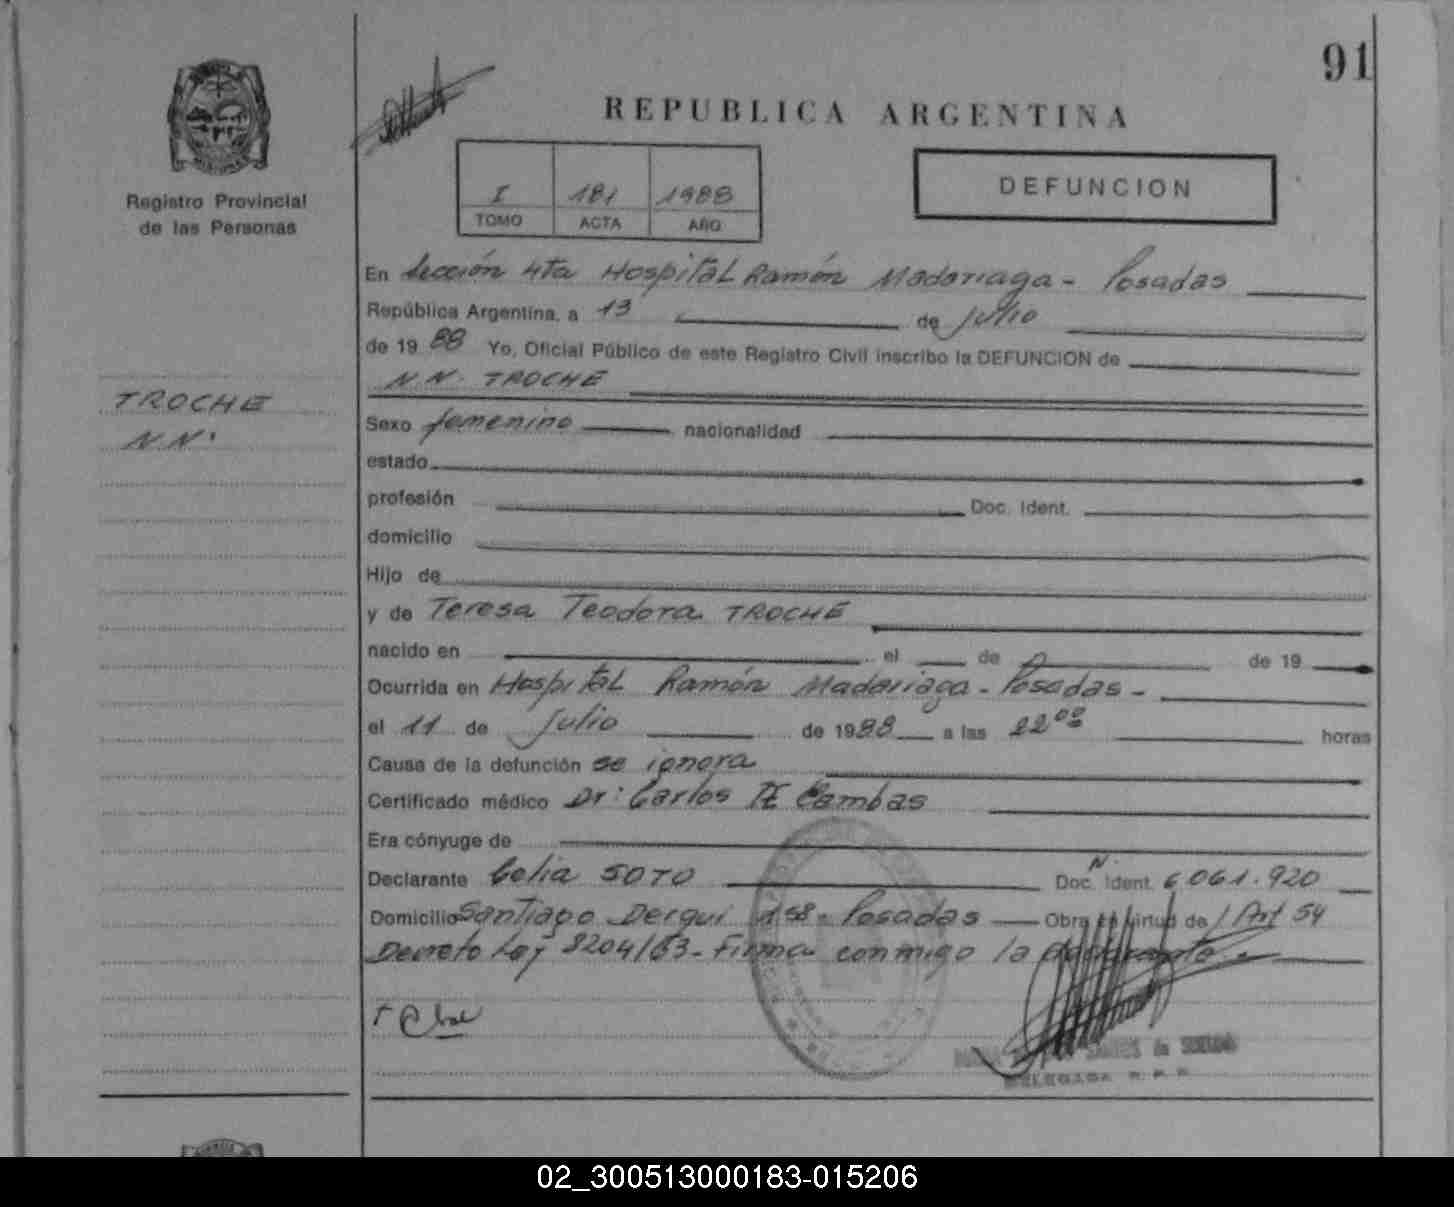 91
REPUBLICA ARGENTINA
Registro Provincial
de las Personas
I 181 1988
TOMO ACTA AÑO
DEFUNCION
En Sección 4ta Hospital Ramón Madariaga - Posadas
República Argentina, a 13 de julio
de 1988 Yo, Oficial Público de este Registro Civil inscribo la DEFUNCION de
N.N. TROCHE
TROCHE
N.N.
Sexo femenino nacionalidad
estado
profesión Doc. Ident.
domicilio
Hijo de
y de Teresa Teodora TROCHE
nacido en el de de 19
Ocurrida en Hospital Ramón Madariaga - Posadas -
el 11 de julio de 1988 a las 22 00 horas
Causa de la defunción se ignora
Certificado médico Dr: Carlos Cambas
Era cónyuge de
Declarante Celia SOTO Doc. Ident. N. 6.061.920
Domicilio Santiago Derqui 158 - Posadas Obra en virtud de Art 54
Decreto Ley 8204/63 - Firma conmigo la declarante -
DELEGADA R. P. P.
02_300513000183-015206